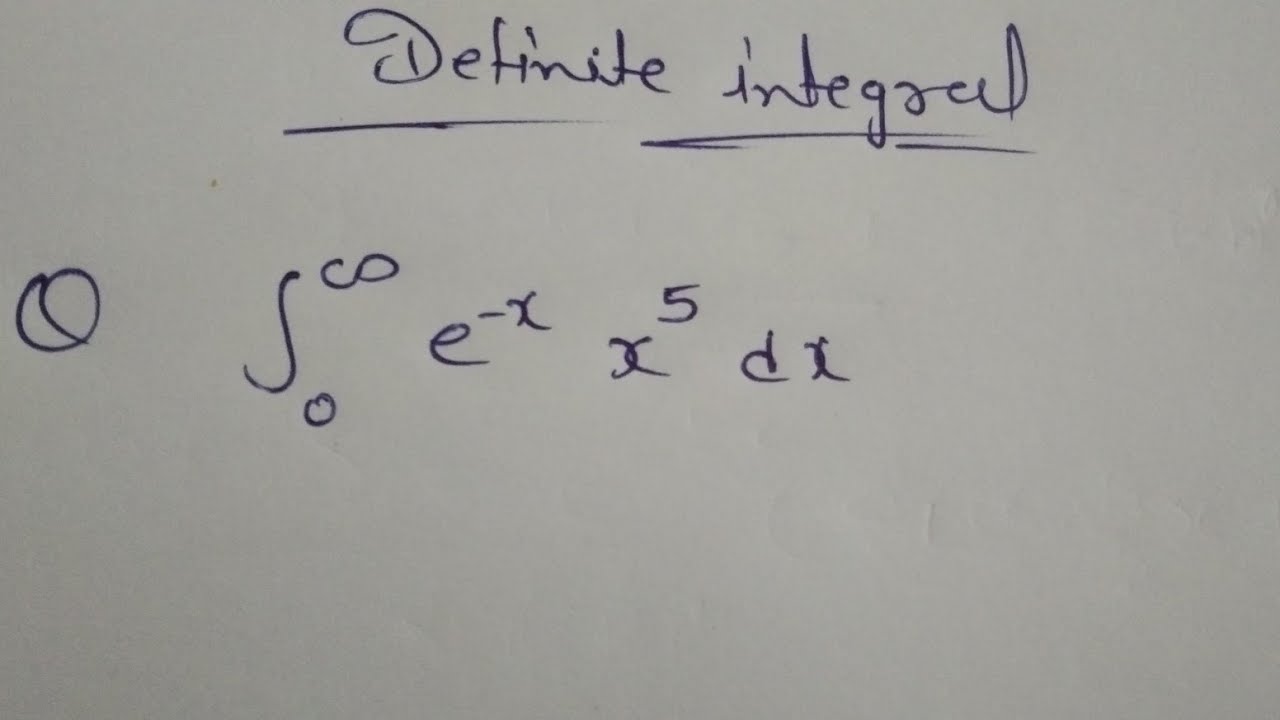 Definite integral
Q ∫₀^∞ e^{-x} x^5 dx